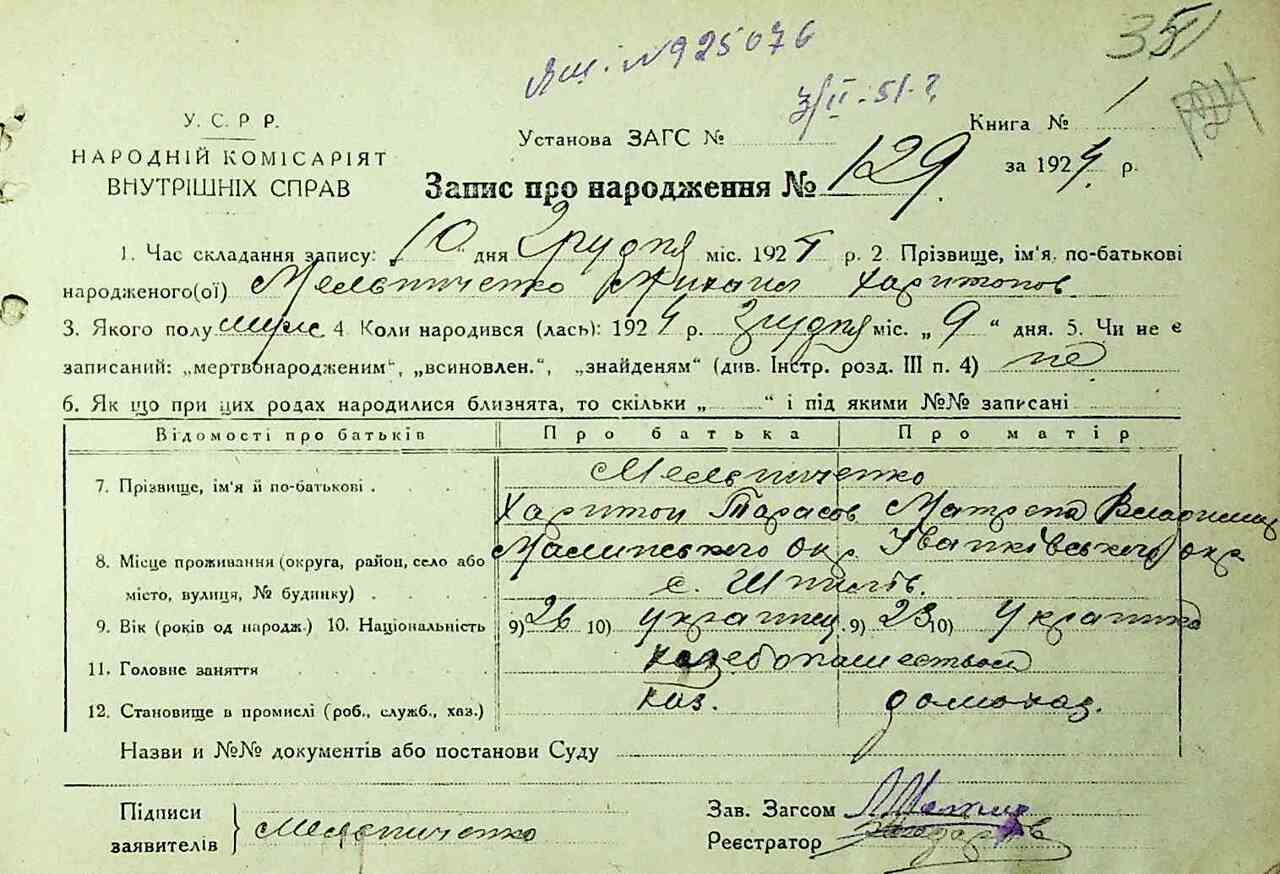 351
№925076
3/II-51
У. С. Р. Р.
НАРОДНІЙ КОМІСАРІЯТ
ВНУТРІШНІХ СПРАВ
Установа ЗАГС №
Книга № 1
Запис про народження № 129
за 1924 р.
1. Час складання запису: 10 дня Грудня міс. 1924 р. 2. Прізвище, ім'я, по-батькові
народженого(ої) Мельниченко Михаил Харитонов
3. Якого полу муж 4. Коли народився (лась): 1924 р. Грудня міс. „ 9 “ дня. 5. Чи не є
записаний: „мертвонародженим“, „всиновлен.“, „знайденям“ (див. Інстр. розд. III п. 4) не
6. Як що при цих родах народилися близнята, то скільки „ “ і під якими №№ записані
Відомості про батьків Про батька Про матір
7. Прізвище, ім'я й по-батькові . Мельниченко
Харитон Тарасов Матрена Владимир
8. Місце проживання (округа, район, село або Малинського окр. Іванківського
місто, вулиця, № будинку) . с. Шпилів.
9. Вік (років од народж.) 10. Національність 9) 26 10) українец 9) 23 10) украінка
11. Головне заняття хлебопашеством
12. Становище в промислі (роб., служб., хаз.) хаз. домохаз.
Назви и №№ документів або постанови Суду
Підписи
заявителів } Мельниченко
Зав. Загсом
Реєстратор